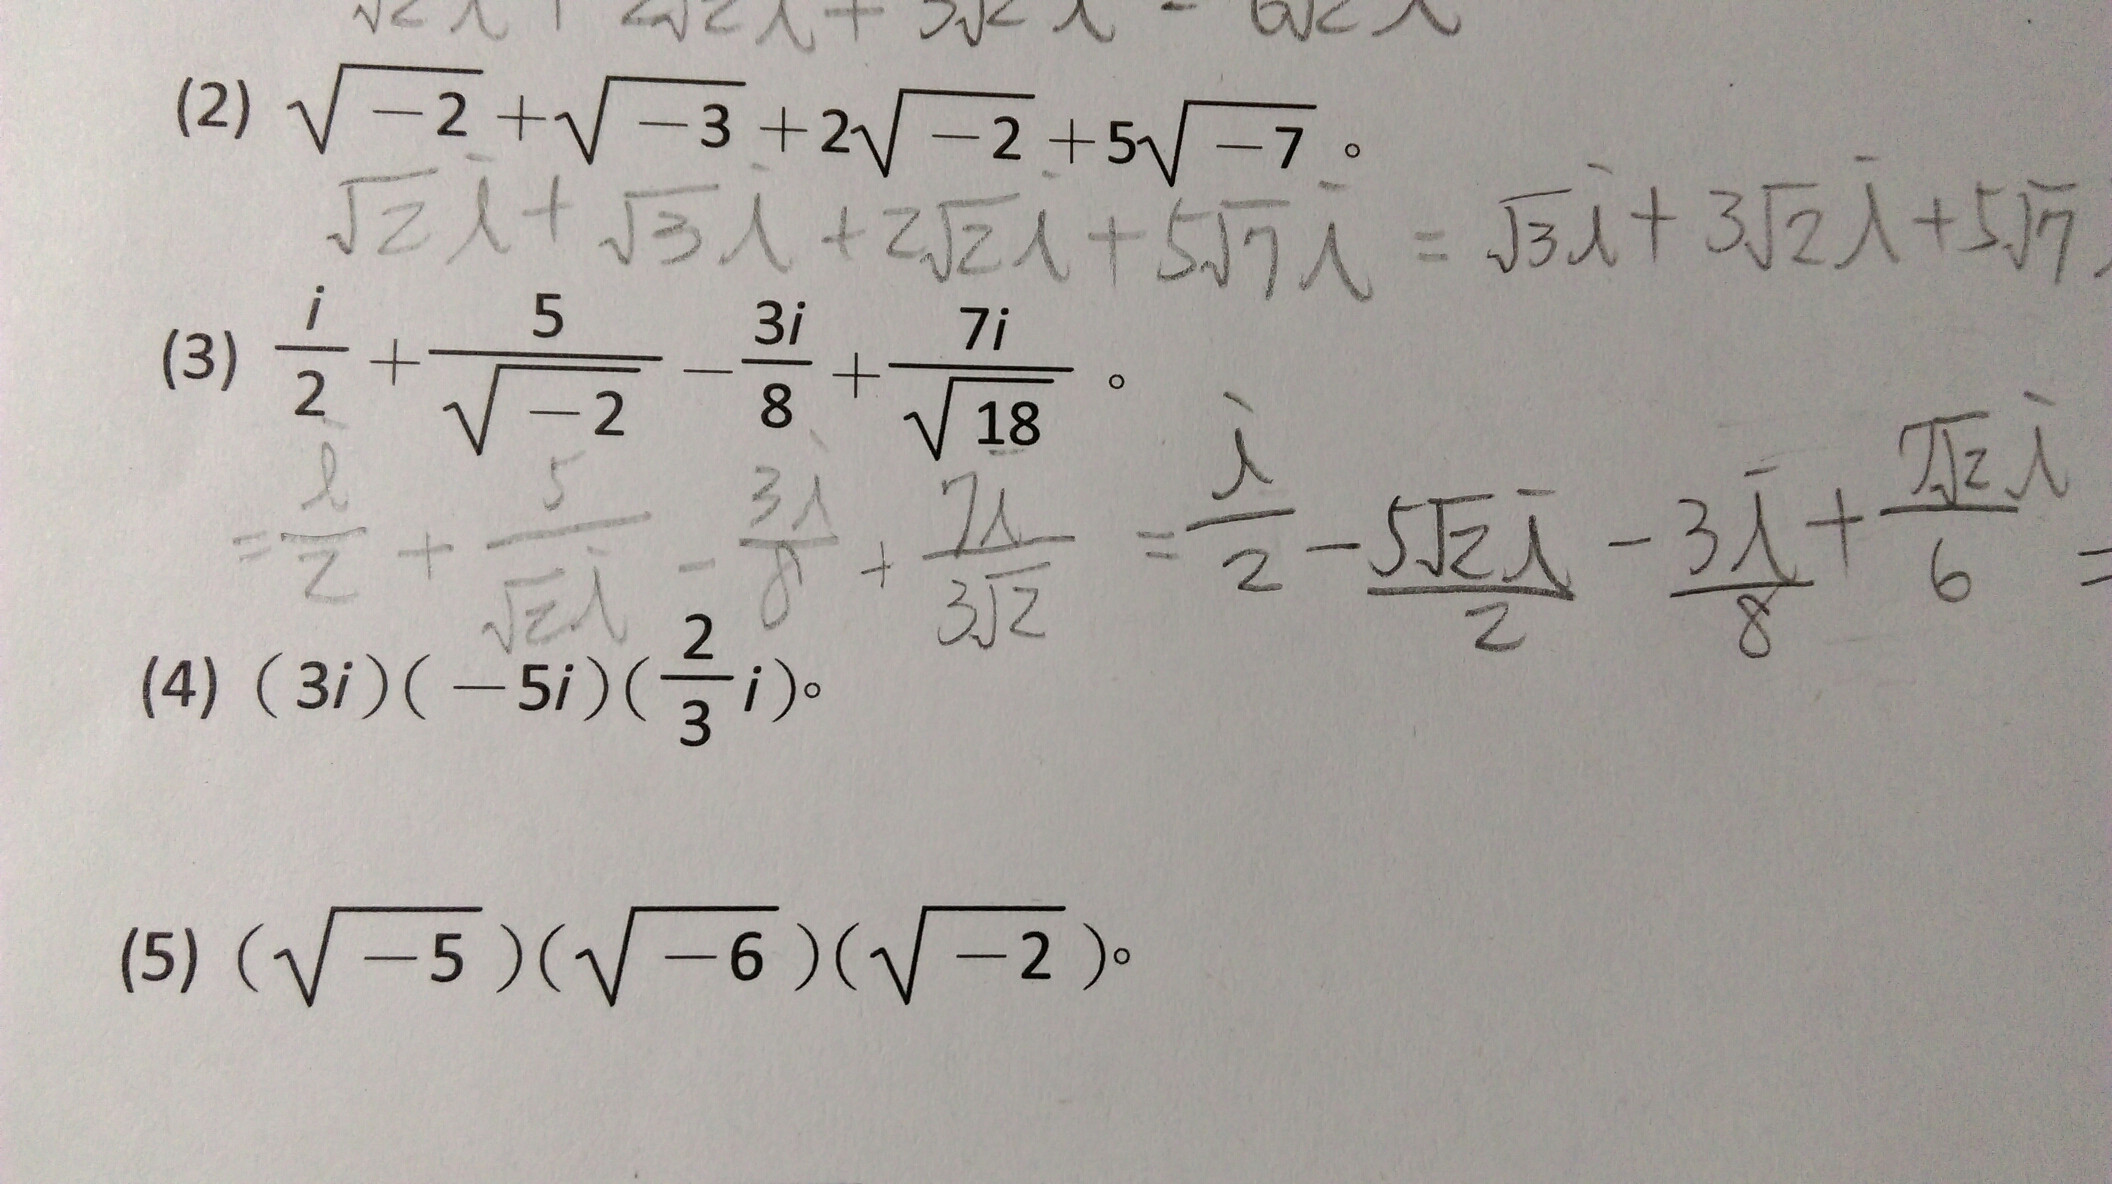 √2 i + 2√2 i + 3√2 i = 6√2 i
(2) √-2 + √-3 + 2√-2 + 5√-7 。
√2 i + √3 i + 2√2 i + 5√7 i = √3 i + 3√2 i + 5√7 i
(3) i/2 + 5/√-2 - 3i/8 + 7i/√18 。
= i/2 + 5/√2 i - 3i/8 + 7i/3√2 = i/2 - 5√2 i/2 - 3i/8 + 7√2 i/6 =
(4) (3i)(-5i)(2/3 i)。
(5) (√-5)(√-6)(√-2)。